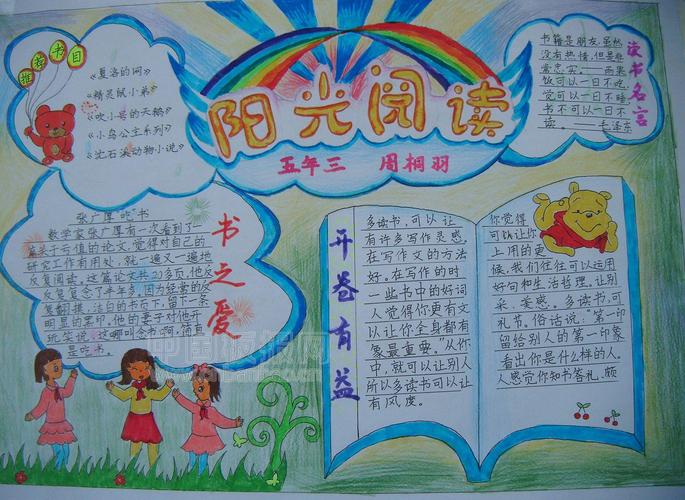 推荐书目
《夏洛的网》
《精灵鼠小弟》
《吹小号的天鹅》
《小鸟公主系列》
《沈石溪动物小说》
阳光阅读
五年三 周桐羽
读书名言
书籍是朋友,虽然
没有热情,但是非
常忠实。——雨果
饭可以一日不吃,
觉可以一日不睡,
书不可以一日不
读。——毛泽东
书之爱
张广厚吃书
数学家张广厚有一次看到了一
篇关于亏值的论文,觉得对自己的
研究工作有用处,就一遍又一遍地
反复阅读。这篇论文共20多页,他反
反复复念了半年多,因为经常的反
复翻摸,洁白的书页下,留下一条
明显的黑印,他的妻子对他开
玩笑说,这哪叫念书啊,简直
是吃书。
开卷有益
多读书,可以让
有许多写作灵感,
在写作文的方法
好。在写作的时
一些书中的好词
人觉得你更有文
以让你全身都有
象最重要。”从你
中,就可以让别人
所以多读书可以让
有风度。
你觉得
可以让你
上用的更
候,我们往往可以运用
好句和生活哲理,让别
采、美感。多读书,可
礼节。俗话说:“第一印
留给别人的第一印象
看出你是什么样的人。
人感觉你知书答礼,颇
中国校报网